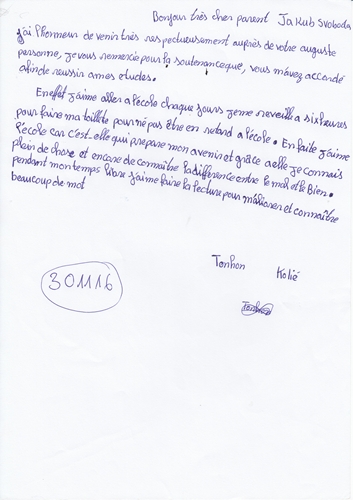 Bonjour très cher parent Jakub Svoboda
j'ai l'honneur de venir très respectueusement auprès de votre auguste
personne, je vous remercie pour la soutenance que, vous m'avez accordé
afin de reussir a mes etudes.
En effet j'aime aller a l'école chaque jours je me reveille a six heures
pour faire ma toillite pour ne pas être en retard a l'école. En faite j'aime
l'école car c'est elle qui prepare mon avenir et grâce a elle je connais
plein de chose et encore de connaître la différence entre le mal et le bien.
pendant mon temps libre j'aime faire la lecture pour m'éliorer et connaître
beaucoup de mot
Tonhon Kolié
301116